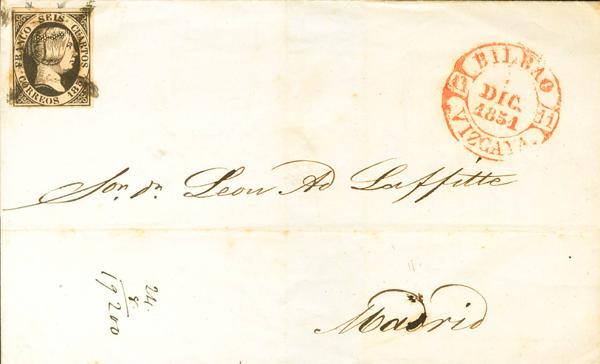 FRANCO SEIS CUARTOS
CORREOS 1851
BILBAO
DIC.
1851
VIZCAYA.
Sor. Dn. Leon Ad Laffitte
Madrid
24
8
19200